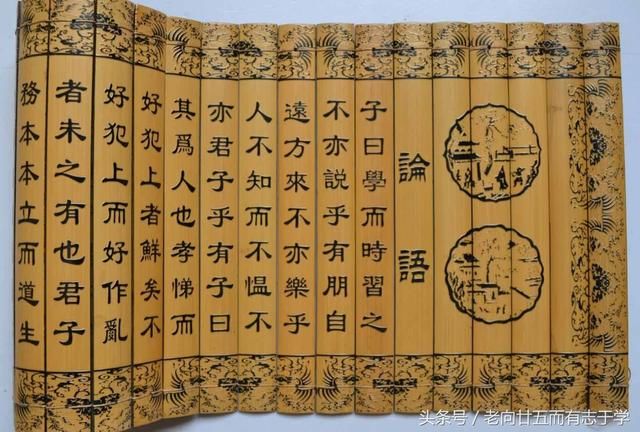 論語
子曰學而時習之
不亦說乎有朋自
遠方來不亦樂乎
人不知而不愠不
亦君子乎有子曰
其爲人也孝悌而
好犯上者鮮矣不
好犯上而好作亂
者未之有也君子
務本本立而道生
头条号 / 老向廿五而有志于学